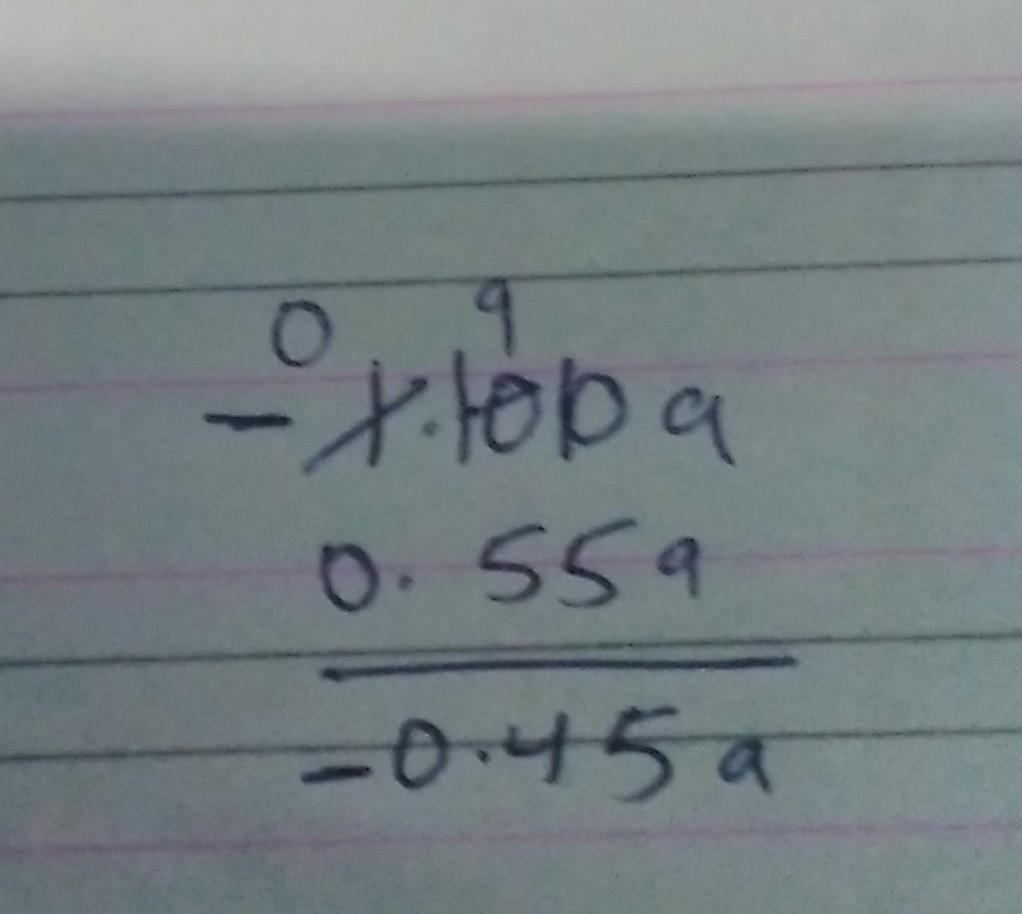 0 9
- 1.100 a
0.55a
-0.45a